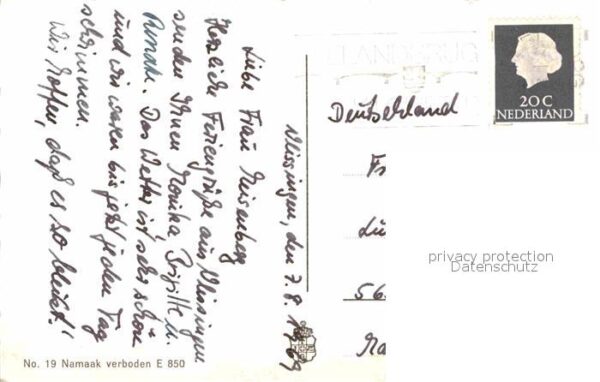 Vlissingen, den 7.8.1969
Liebe Frau Meisenberg
Herzliche Feriengrüße aus Vlissingen
senden Ihnen Monika Brigitte u.
Renate. Das Wetter ist sehr schön
und wir waren bis jetzt jeden Tag
schwimmen.
Wir hoffen, daß es so bleibt!
No. 19 Namaak verboden E 850
20 C
NEDERLAND
Deutschland
F
Lu
56
privacy protection
Datenschutz